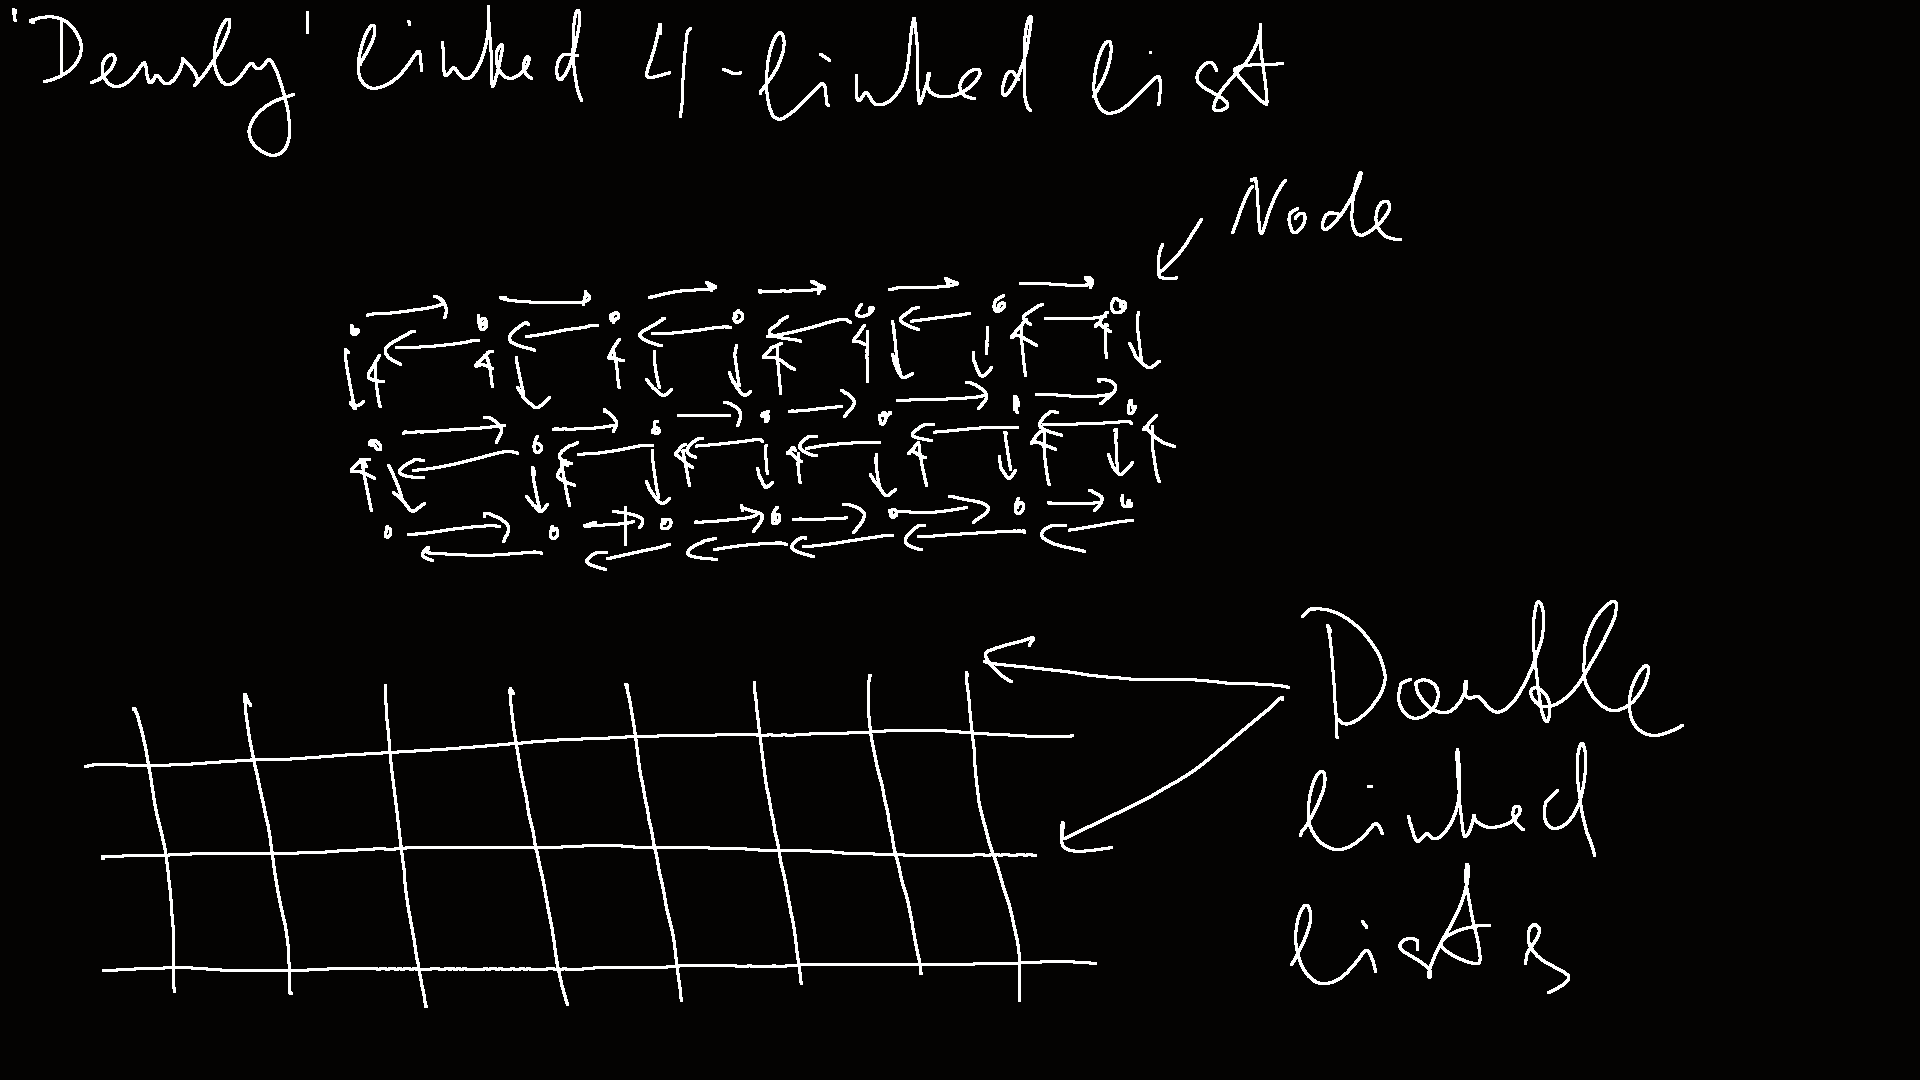 'Densly' linked 4-linked list
Node
Double
linked
lists